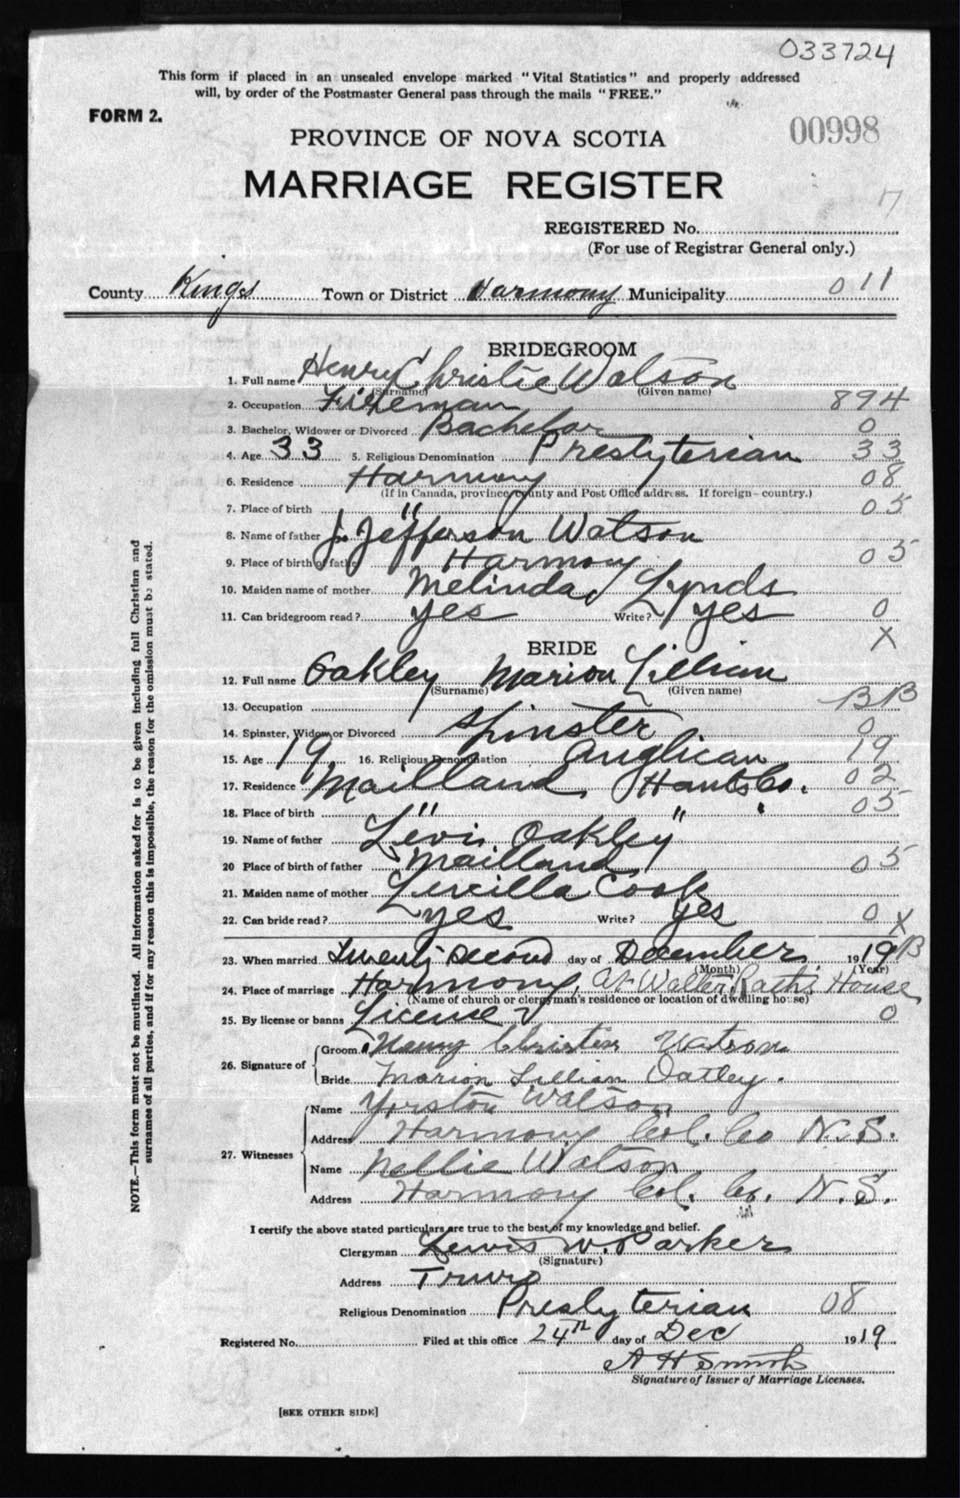 033724
This form if placed in an unsealed envelope marked "Vital Statistics" and properly addressed
will, by order of the Postmaster General pass through the mails "FREE."
FORM 2.
00998
PROVINCE OF NOVA SCOTIA
MARRIAGE REGISTER
17
REGISTERED No.
(For use of Registrar General only.)
County Kings Town or District Harmony Municipality 011
BRIDEGROOM
1. Full name Henry Christie Watson
(Surname) (Given name)
2. Occupation Fireman 894
3. Bachelor, Widower or Divorced Bachelor 0
4. Age 33 5. Religious Denomination Presbyterian 33
6. Residence Harmony 08
(If in Canada, province, county and Post Office address. If foreign—country.)
7. Place of birth " 05
8. Name of father J. Jefferson Watson
9. Place of birth of father Harmony 05
10. Maiden name of mother Melinda Lynds
11. Can bridegroom read? yes Write? yes 0
X
BRIDE
12. Full name Oakley Marion Lillian
(Surname) (Given name)
13. Occupation BB
14. Spinster, Widow or Divorced Spinster 0
15. Age 19 16. Religious Denomination Anglican 19
17. Residence Mailland Hants Co. 02
18. Place of birth " " 05
19. Name of father Levi Oakley
20 Place of birth of father Mailland 05
21. Maiden name of mother Lurcilla Cook
22. Can bride read? yes Write? yes 0 X
23. When married Twenty second day of December 1919 B
(Month) (Year)
24. Place of marriage Harmony, At Walter Rath's House
(Name of church or clergyman's residence or location of dwelling house)
25. By license or banns License 0
26. Signature of Groom Henry Christie Watson
Bride Marion Lillian Oatley.
27. Witnesses Name Yorston Watson
Address Harmony Col. Co N.S.
Name Nellie Watson
Address Harmony Col. Co. N.S.
I certify the above stated particulars are true to the best of my knowledge and belief.
Clergyman Lewis W. Parker
(Signature)
Address Truro
Religious Denomination Presbyterian 08
Registered No. Filed at this office 24th day of Dec 1919
A H Smith
Signature of Issuer of Marriage Licenses.
[SEE OTHER SIDE]
NOTE.—This form must not be mutilated. All information asked for is to be given including full Christian and
surnames of all parties, and if for any reason this is impossible, the reason for the omission must be stated.